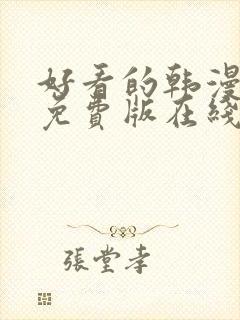 好看的韩漫
免費版在綫
張堂幸